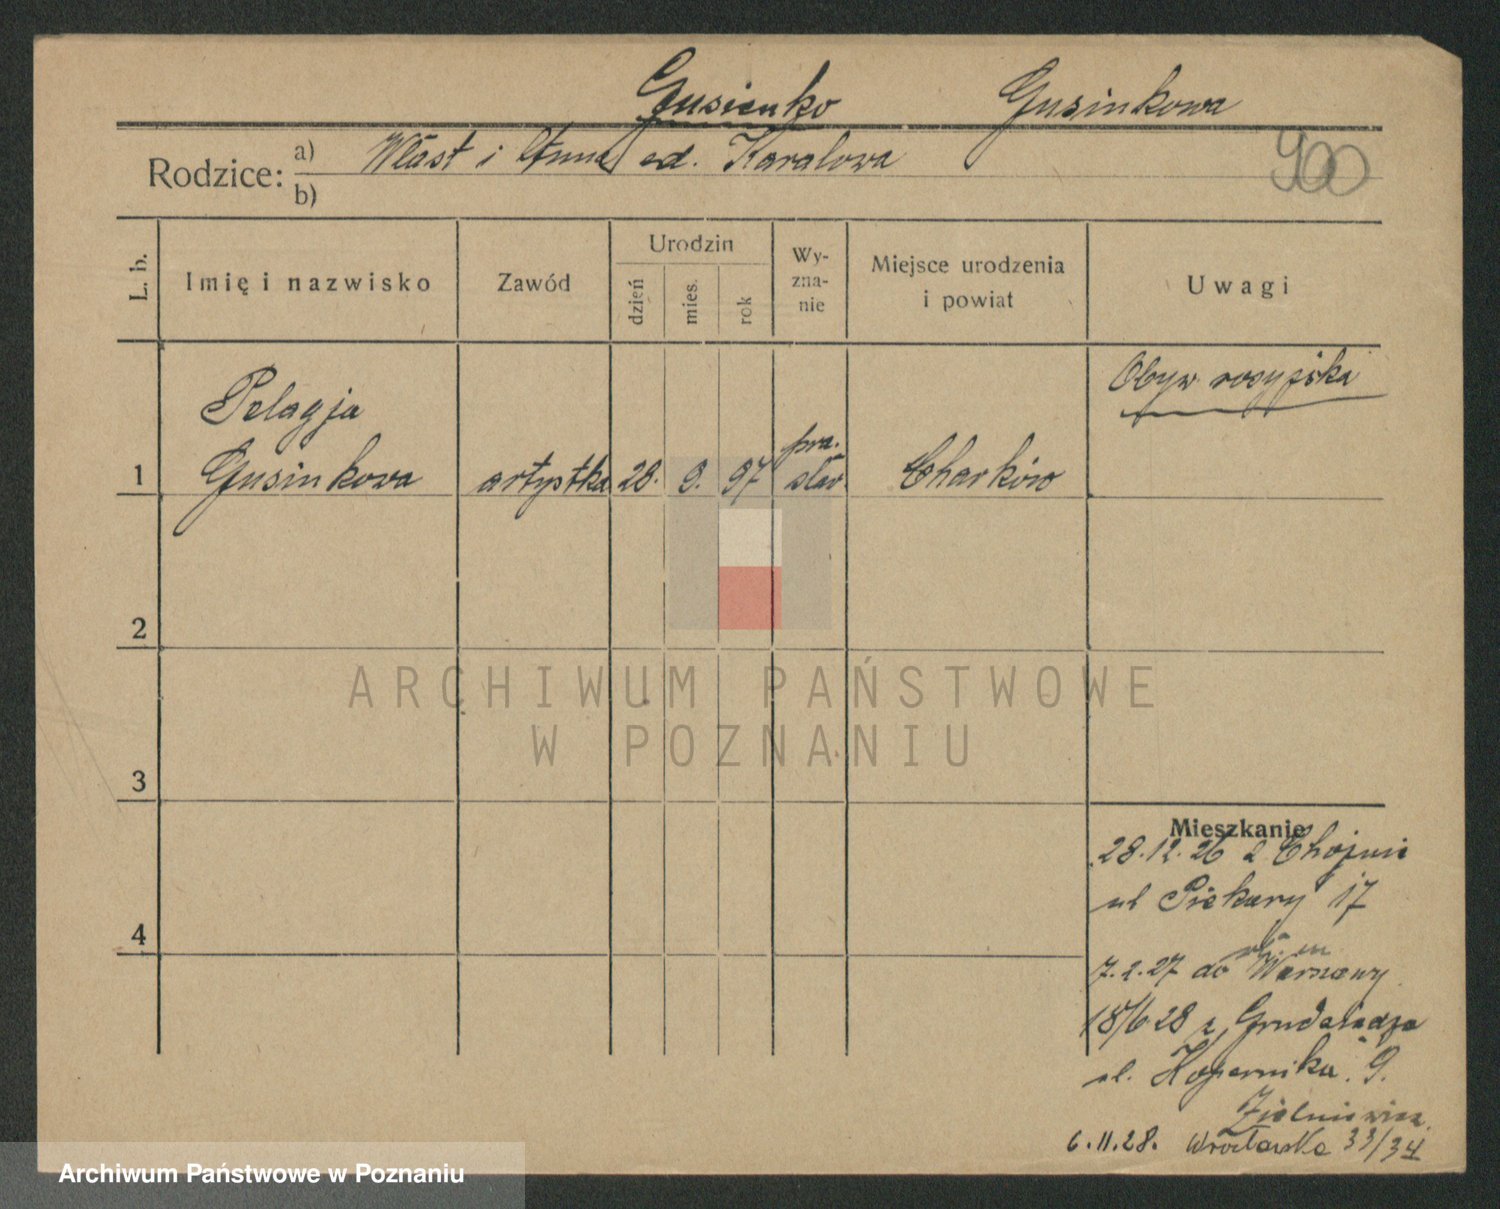 Gusienko Gusinkowa
Rodzice: a) Włast i Anna
b)
900
L. b. Imię i nazwisko Zawód Urodzin dzień mies. rok Wy-zna-nie Miejsce urodzenia i powiat Uwagi
Obyw rosyjska
Pelagja
1 Gusinkowa artystka 28. 9. 97 pra. sław Charków
2
3
4
ARCHIWUM PAŃSTWOWE
W POZNANIU
Mieszkanie
28.12.26 z Chojnic
ul Piekary 17
7.2.27 do Warszawy
18/6 28 z Grudziądza
ul. Kopernika 9.
6.11.28. Wrocławska 33/34
Archiwum Państwowe w Poznaniu